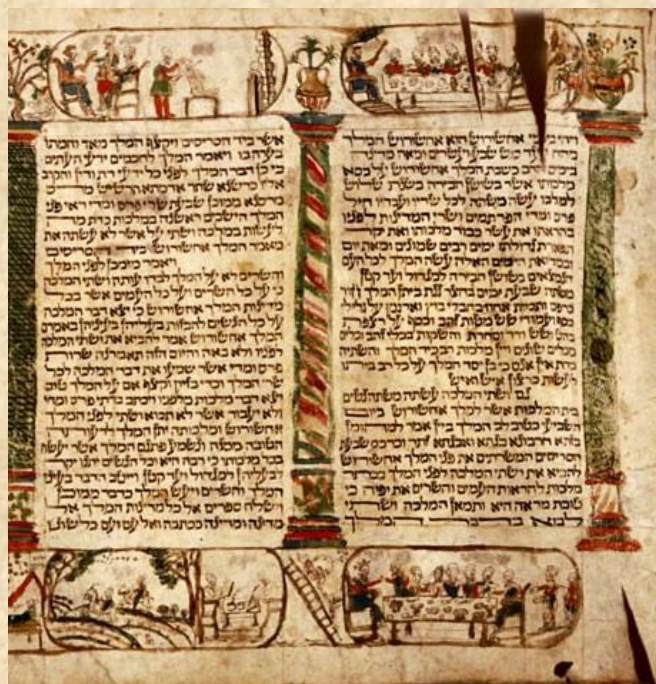 ויהי בימי אחשורוש הוא אחשורוש המלך
ועד כוש שבע ועשרים ומאה מדינה
בימים ההם כשבת המלך אחשורוש על כסא
מלכותו אשר בשושן הבירה בשנת שלוש
למלכו עשה משתה לכל שריו ועבדיו חיל
פרס ומדי הפרתמים ושרי המדינות לפניו
בהראתו את עשר כבוד מלכותו ואת יקר
תפארת גדולתו ימים רבים שמונים ומאת יום
ובמלואת הימים האלה עשה המלך לכל העם
הנמצאים בשושן הבירה למגדול ועד קטן
משתה שבעת ימים בחצר גנת ביתן המלך חור
כרפס ותכלת אחוז בחבלי בוץ וארגמן על גלילי
כסף ועמודי שש מטות זהב וכסף על רצפת
בהט ושש ודר וסחרת והשקות בכלי זהב וכלים
מכלים שונים ויין מלכות רב כיד המלך והשתיה
כדת אין אנס כי כן יסד המלך על כל רב ביתו
לעשות כרצון איש ואיש
גם ושתי המלכה עשתה משתה נשים
בית המלכות אשר למלך אחשורוש ביום
השביעי כטוב לב המלך ביין אמר למהומן
בזתא חרבונא בגתא ואבגתא זתר וכרכס שבעת
הסריסים המשרתים את פני המלך אחשורוש
להביא את ושתי המלכה לפני המלך בכתר
מלכות להראות העמים והשרים את יפיה כי
טובת מראה היא ותמאן המלכה ושתי
לבוא בדבר המלך
אשר ביד הסריסים ויקצף המלך מאד וחמתו
בערה בו ויאמר המלך לחכמים ידעי העתים
כי כן דבר המלך לפני כל ידעי דת ודין והקרב
אליו כרשנא שתר אדמתא תרשיש מרס
מרסנא ממוכן שבעת שרי פרס ומדי ראי פני
המלך הישבים ראשנה במלכות כדת מה
לעשות במלכה ושתי על אשר לא עשתה את
מאמר המלך אחשורוש ביד הסריסים
ויאמר מומכן לפני המלך
והשרים לא על המלך לבדו עותה ושתי המלכה
כי על כל השרים ועל כל העמים אשר בכל
מדינות המלך אחשורוש כי יצא דבר המלכה
על כל הנשים להבזות בעליהן בעיניהן באמרם
המלך אחשורוש אמר להביא את ושתי המלכה
לפניו ולא באה והיום הזה תאמרנה שרות
פרס ומדי אשר שמעו את דבר המלכה לכל
שרי המלך וכדי בזיון וקצף אם על המלך טוב
יצא דבר מלכות מלפניו ויכתב בדתי פרס ומדי
ולא יעבור אשר לא תבוא ושתי לפני המלך
אחשורוש ומלכותה יתן המלך לרעותה
הטובה ממנה ונשמע פתגם המלך אשר יעשה
בכל מלכותו כי רבה היא וכל הנשים יתנו יקר
לבעליהן למגדול ועד קטן וייטב הדבר בעיני
המלך והשרים ויעש המלך כדבר ממוכן
וישלח ספרים אל כל מדינות המלך אל
מדינה ומדינה ככתבה ואל עם ועם כלשונו